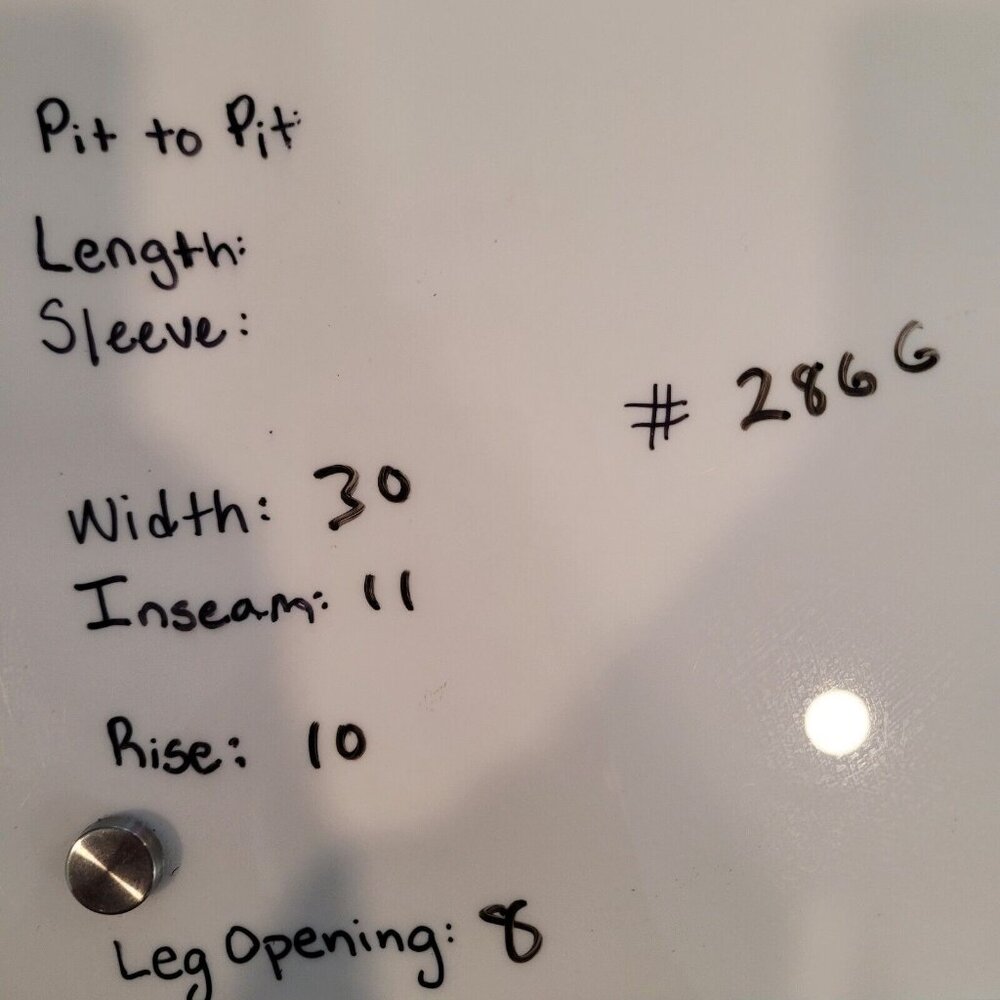 Pit to Pit:
Length:
Sleeve:
# 2866
Width: 30
Inseam: 11
Rise: 10
Leg Opening: 8